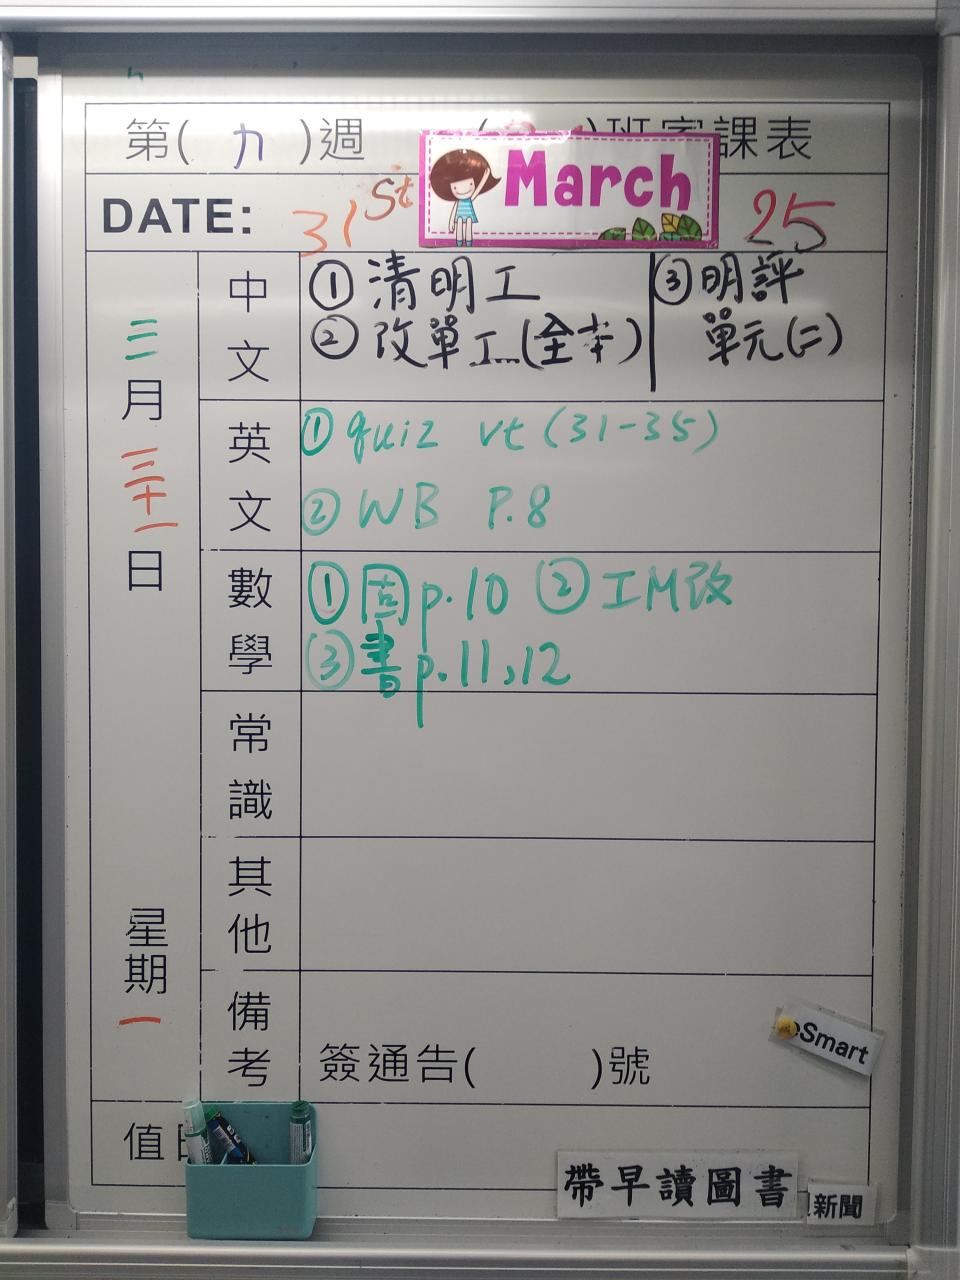 第( 九 )週
課表
DATE: 31st March 25
三月三十一日
星期一
中文
① 清明工
② 改單工(全本)
③ 明評
單元(二)
英文
① quiz vt (31-35)
② WB P.8
數學
① 固 p.10 ② 工M改
③ 書 p.11,12
常識
其他
備考
簽通告( )號
Smart
值
帶早讀圖書
新聞